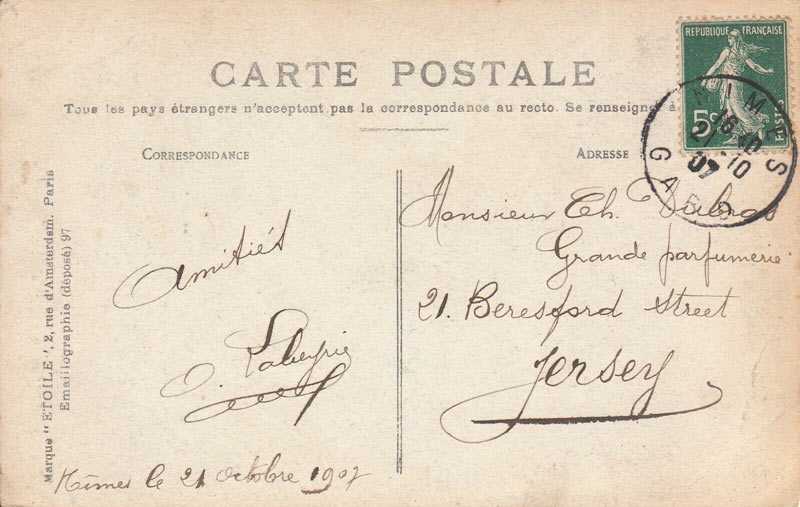 CARTE POSTALE
Tous les pays étrangers n'acceptent pas la correspondance au recto. Se renseigner à
RÉPUBLIQUE FRANÇAISE
5c
POSTES
NIMES
16 40
21 10
07
GARD
CORRESPONDANCE
ADRESSE
Amitiés
Nîmes le 21 octobre 1907
Monsieur Ch.
Grande parfumerie
21. Beresford Street
Jersey
Marque "ETOILE", 2, rue d'Amsterdam. Paris
Emaillographie (déposé) 97